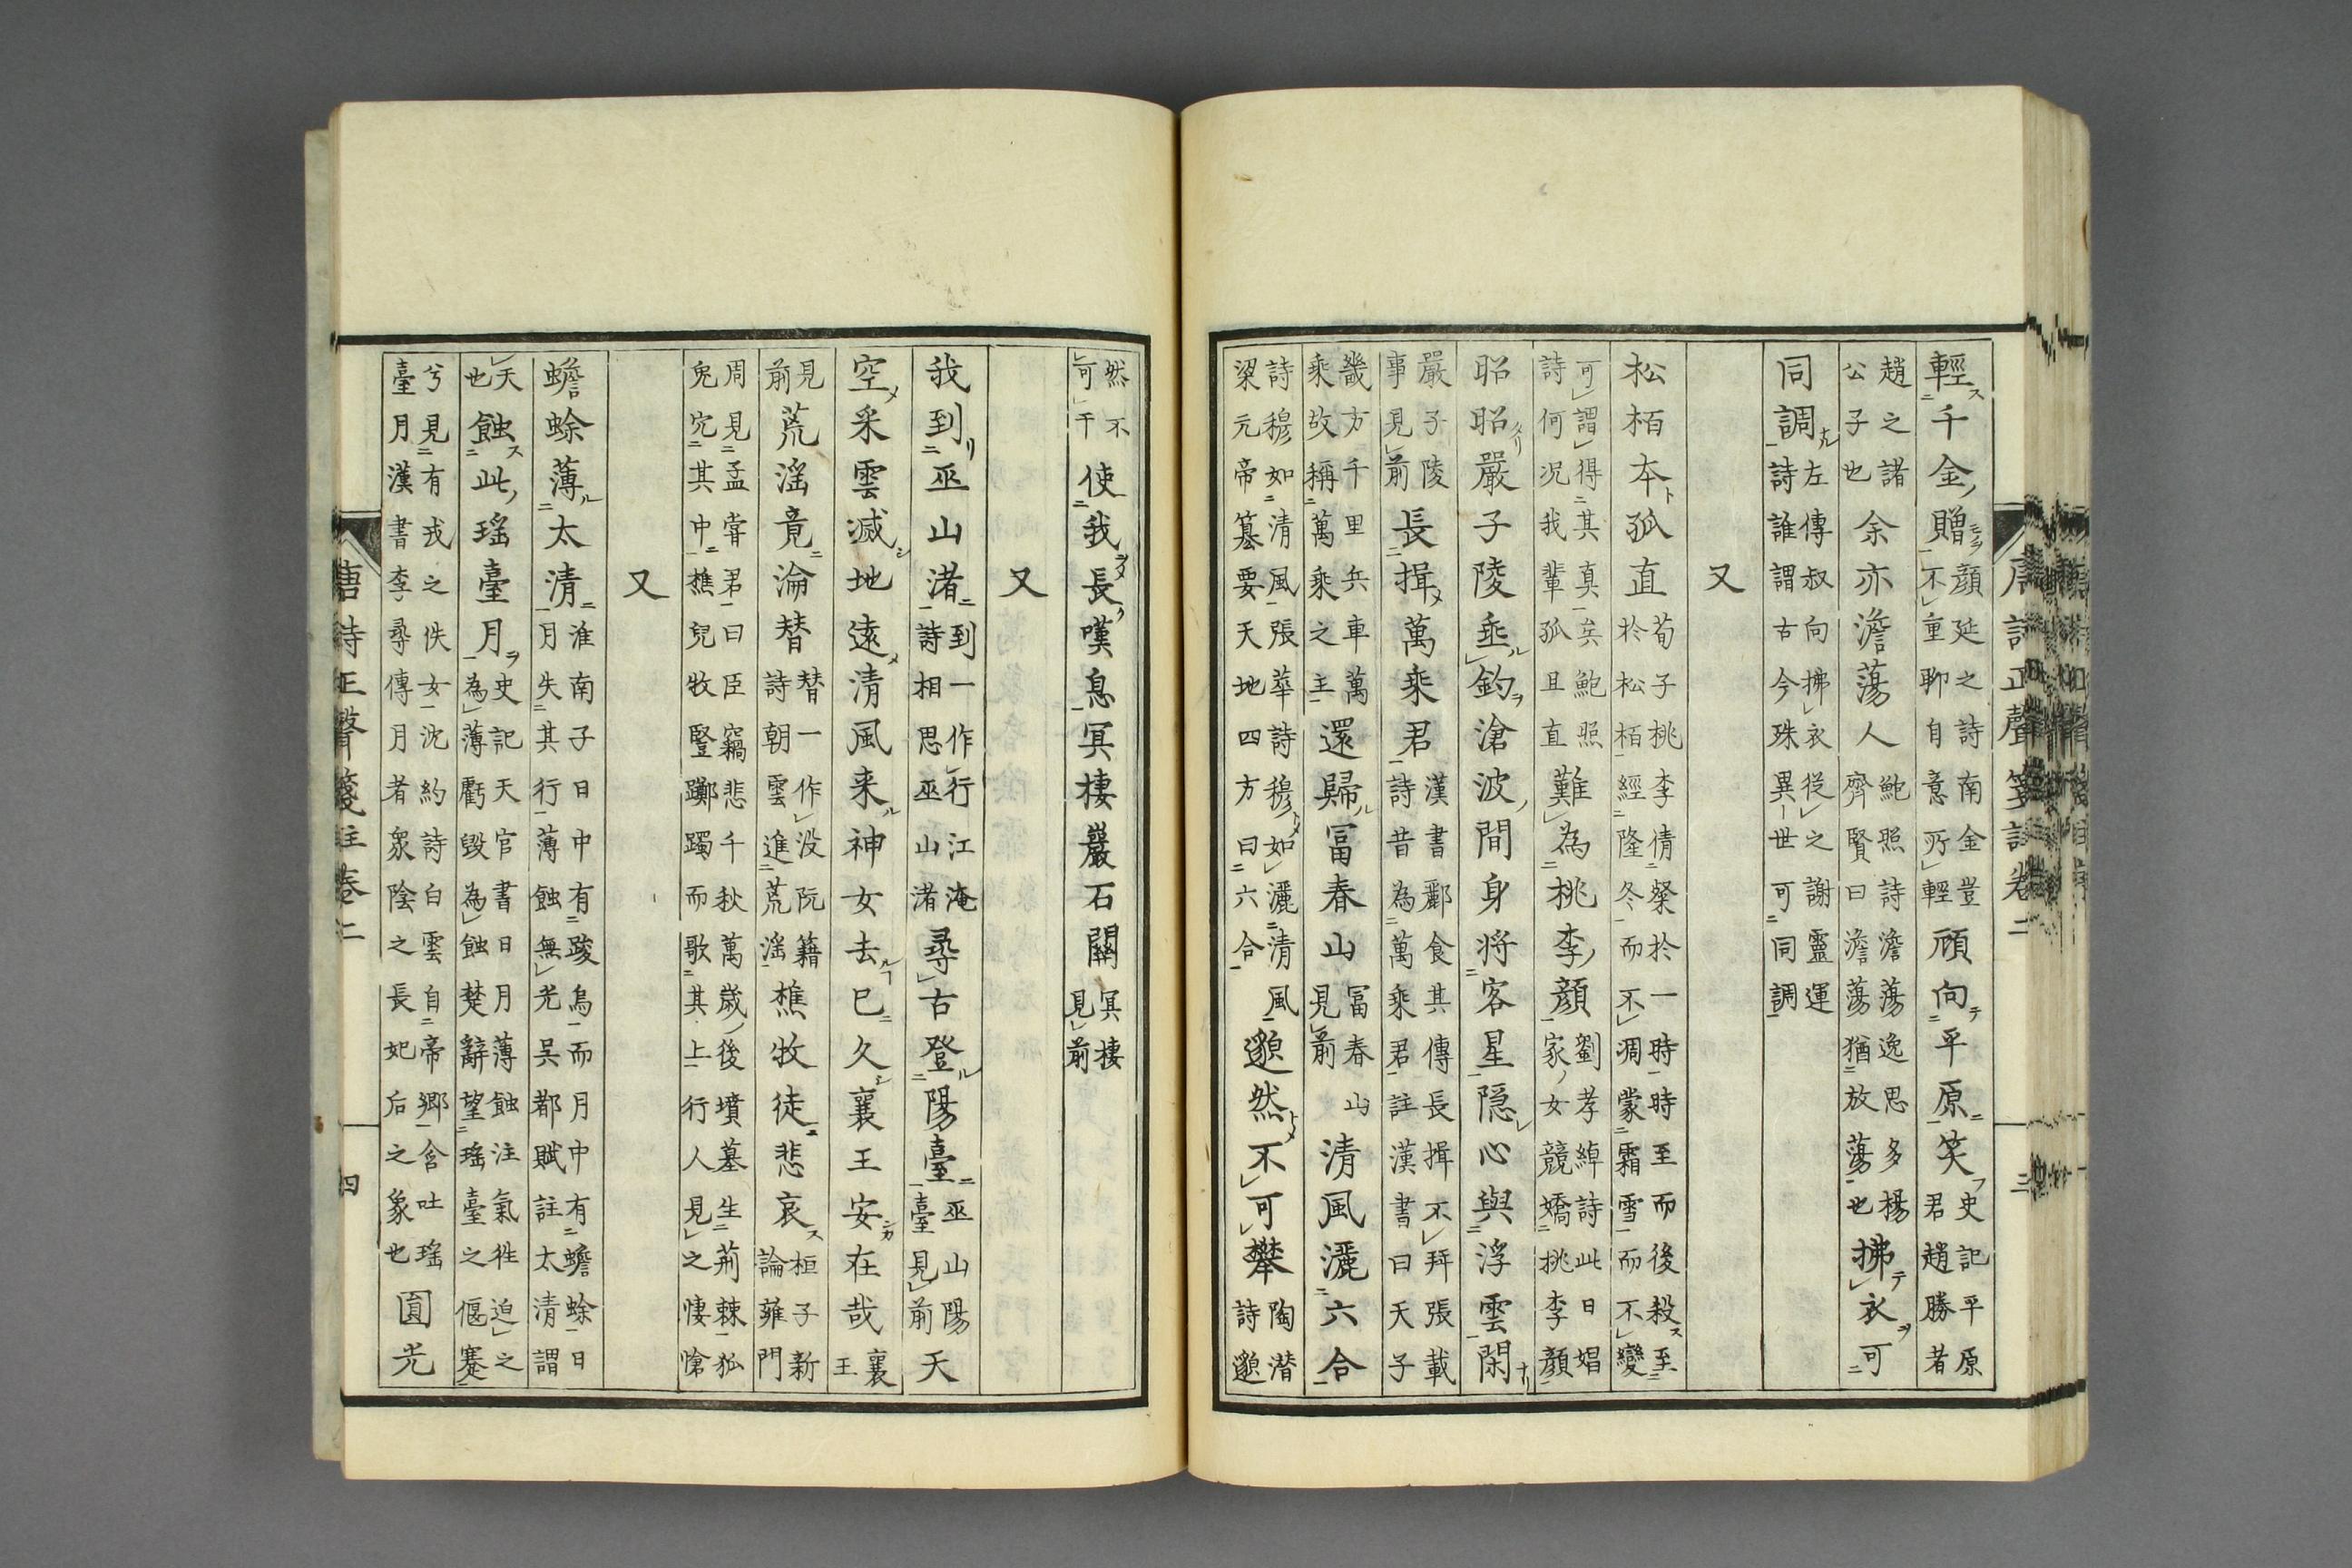 輕千金贈顔延之詩南金豈不重聊自意所輕顧向平原笑史記平原君趙勝者
趙之諸公子也余亦澹蕩人鮑照詩澹蕩逸思多楊齊賢曰澹蕩猶放蕩也拂衣可
同調左傳叔向拂衣從之謝靈運詩誰謂古今珠異世可同調
又
松栢本孤直荀子桃李倩粲於一時時至而後殺至於松栢經隆冬而不凋蒙霜雪而不變
可謂得其真矣鮑照詩何况我輩孤且直難為桃李顔劉孝綽詩此日娼家女競嬌桃李顔
昭昭嚴子陵垂釣滄波間身将客星隐心與浮雲閑
嚴子陵事見前長揖萬乘君漢書酈食其傳長揖不拜張載詩昔為萬乘君註漢書曰天子
畿方千里兵車萬乘故稱萬乘之主還歸冨春山冨春山見前清風灑六合
詩穆如清風張華詩穆如灑清風梁元帝纂要天地四方曰六合邈然不可攀陶潜詩邈
然不可干使我長嘆息冥棲巖石間冥棲見前
又
我到巫山渚到一作行江淹詩相思巫山渚尋古登陽臺巫山陽臺見前天
空采雲滅地遠清風来神女去已久襄王安在哉襄王
見前荒滛竟淪替替一作没阮籍詩朝雲進荒滛樵牧徒悲哀桓子新論雍門
周見孟甞君曰臣竊悲千秋萬歳後墳墓生荊棘狐兔穴其中樵兒牧豎躑躅而歌其上行人見之悽愴
又
蟾蜍薄太清淮南子日中有踆烏而月中有蟾蜍日月失其行薄蝕無光吳都賦註太清謂
天也蝕此瑶臺月史記天官書日月薄蝕注氣徃迫之為薄虧毀為蝕楚辭望瑶臺之偃蹇
兮見有戎之佚女沈約詩白雲自帝郷含吐瑶臺月漢書李尋傳月者衆陰之長妃后之象也圓光
唐詩正聲箋註卷二 四